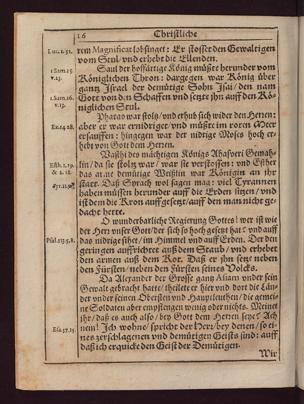 16 Christliche
Luc.1.51. rem Magnificat lobsinget: Er stosset den Gewaltigen
vom Stul/ vnd erhebt die Ellenden.
1.Sam.15 Saul der hoffärtige König müßte herunder vom
v.23. Königlichen Thron: dargegen war König über
gantz Israel der demütige Sohn Isai/ den nam
1.Sam.16. Gott von den Schaffen vnd setzte jhn auff den Kö-
v.13. niglichen Stul.
Pharao war stoltz/ vnd erhub sich wider den Herren:
Exo.14.28. aber er ward ernidriget/ vnd müßte im roten Meer
ersauffen: hingegen war der nidrige Moses hoch er-
hebt von Gott dem Herren.
Vasthi des mächtigen Königs Ahasveri Gemah-
Esth.1.19. lin/ da sie stoltz war/ war sie verstossen: vnd Esther
& 2.18. das arme demütige Weiblin war Königin an jhr
statt. Daß Syrach wol sagen mag: viel Tyrannen
haben müssen herunder auff die Erden sitzen/ vnd
ist dem die Kron auffgesetzt/ auff den man nicht ge-
dacht hette.
O wunderbarliche Regierung Gottes! wer ist wie
der Herr vnser Gott/ der sich so hoch gesetzt hat/ vnd auff
Psal.113.5. das nidrige sihet/ im Himmel vnd auff Erden. Der den
geringen auffrichtet auß dem Staub/ vnd erhebet
den armen auß dem Kot. Daß er jhn setze neben
den Fürsten/ neben den Fürsten seines Volcks.
Da Alexander der Grosse gantz Asiam vnder sein
Gewalt gebracht hatte/ theilete er hier vnd dort die Län-
der vnder seinen Obersten vnd Hauptleuthen/ die gemei-
ne Soldaten aber empfiengen wenig oder nichts. Meinet
jhr/ daß es auch also/ bey Gott dem Herren seye? Ach
Esa.57.15. nein! Ich wohne/ spricht der Herr/ bey denen/ so ei-
nes zerschlagenen vnd demütigen Geists sind: auff
daß ich erquicke den Geist der Demütigen.
Wir